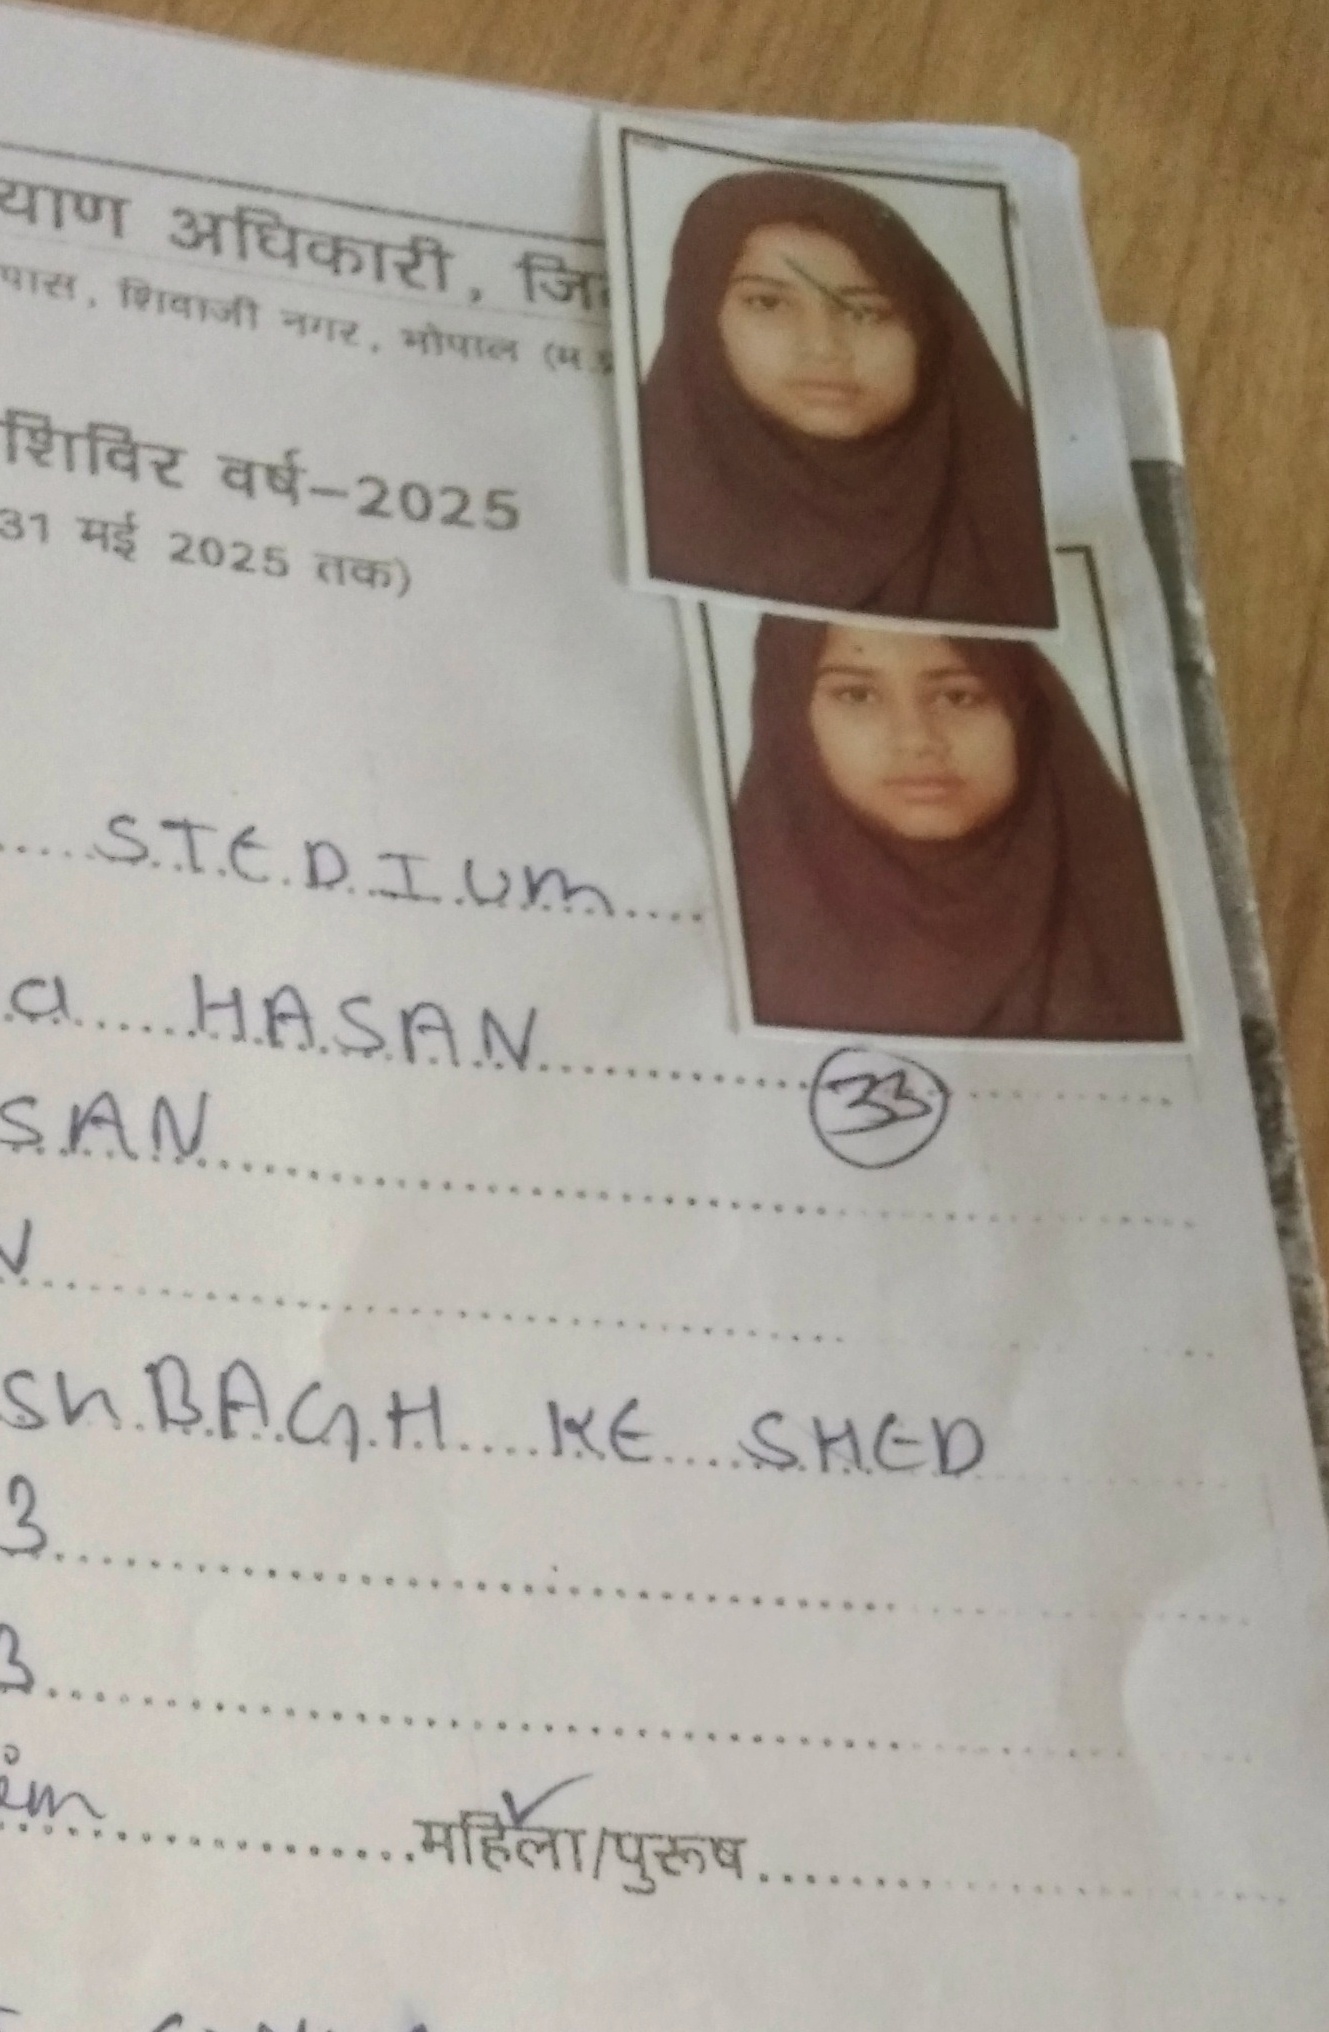 याण अधिकारी, जि
पास, शिवाजी नगर, भोपाल (म.प्र
शिविर वर्ष-2025
31 मई 2025 तक)
STEDIUM
a HASAN
33
SAN
N
Sh BAGH KE SHED
3
3
im महिला/पुरूष